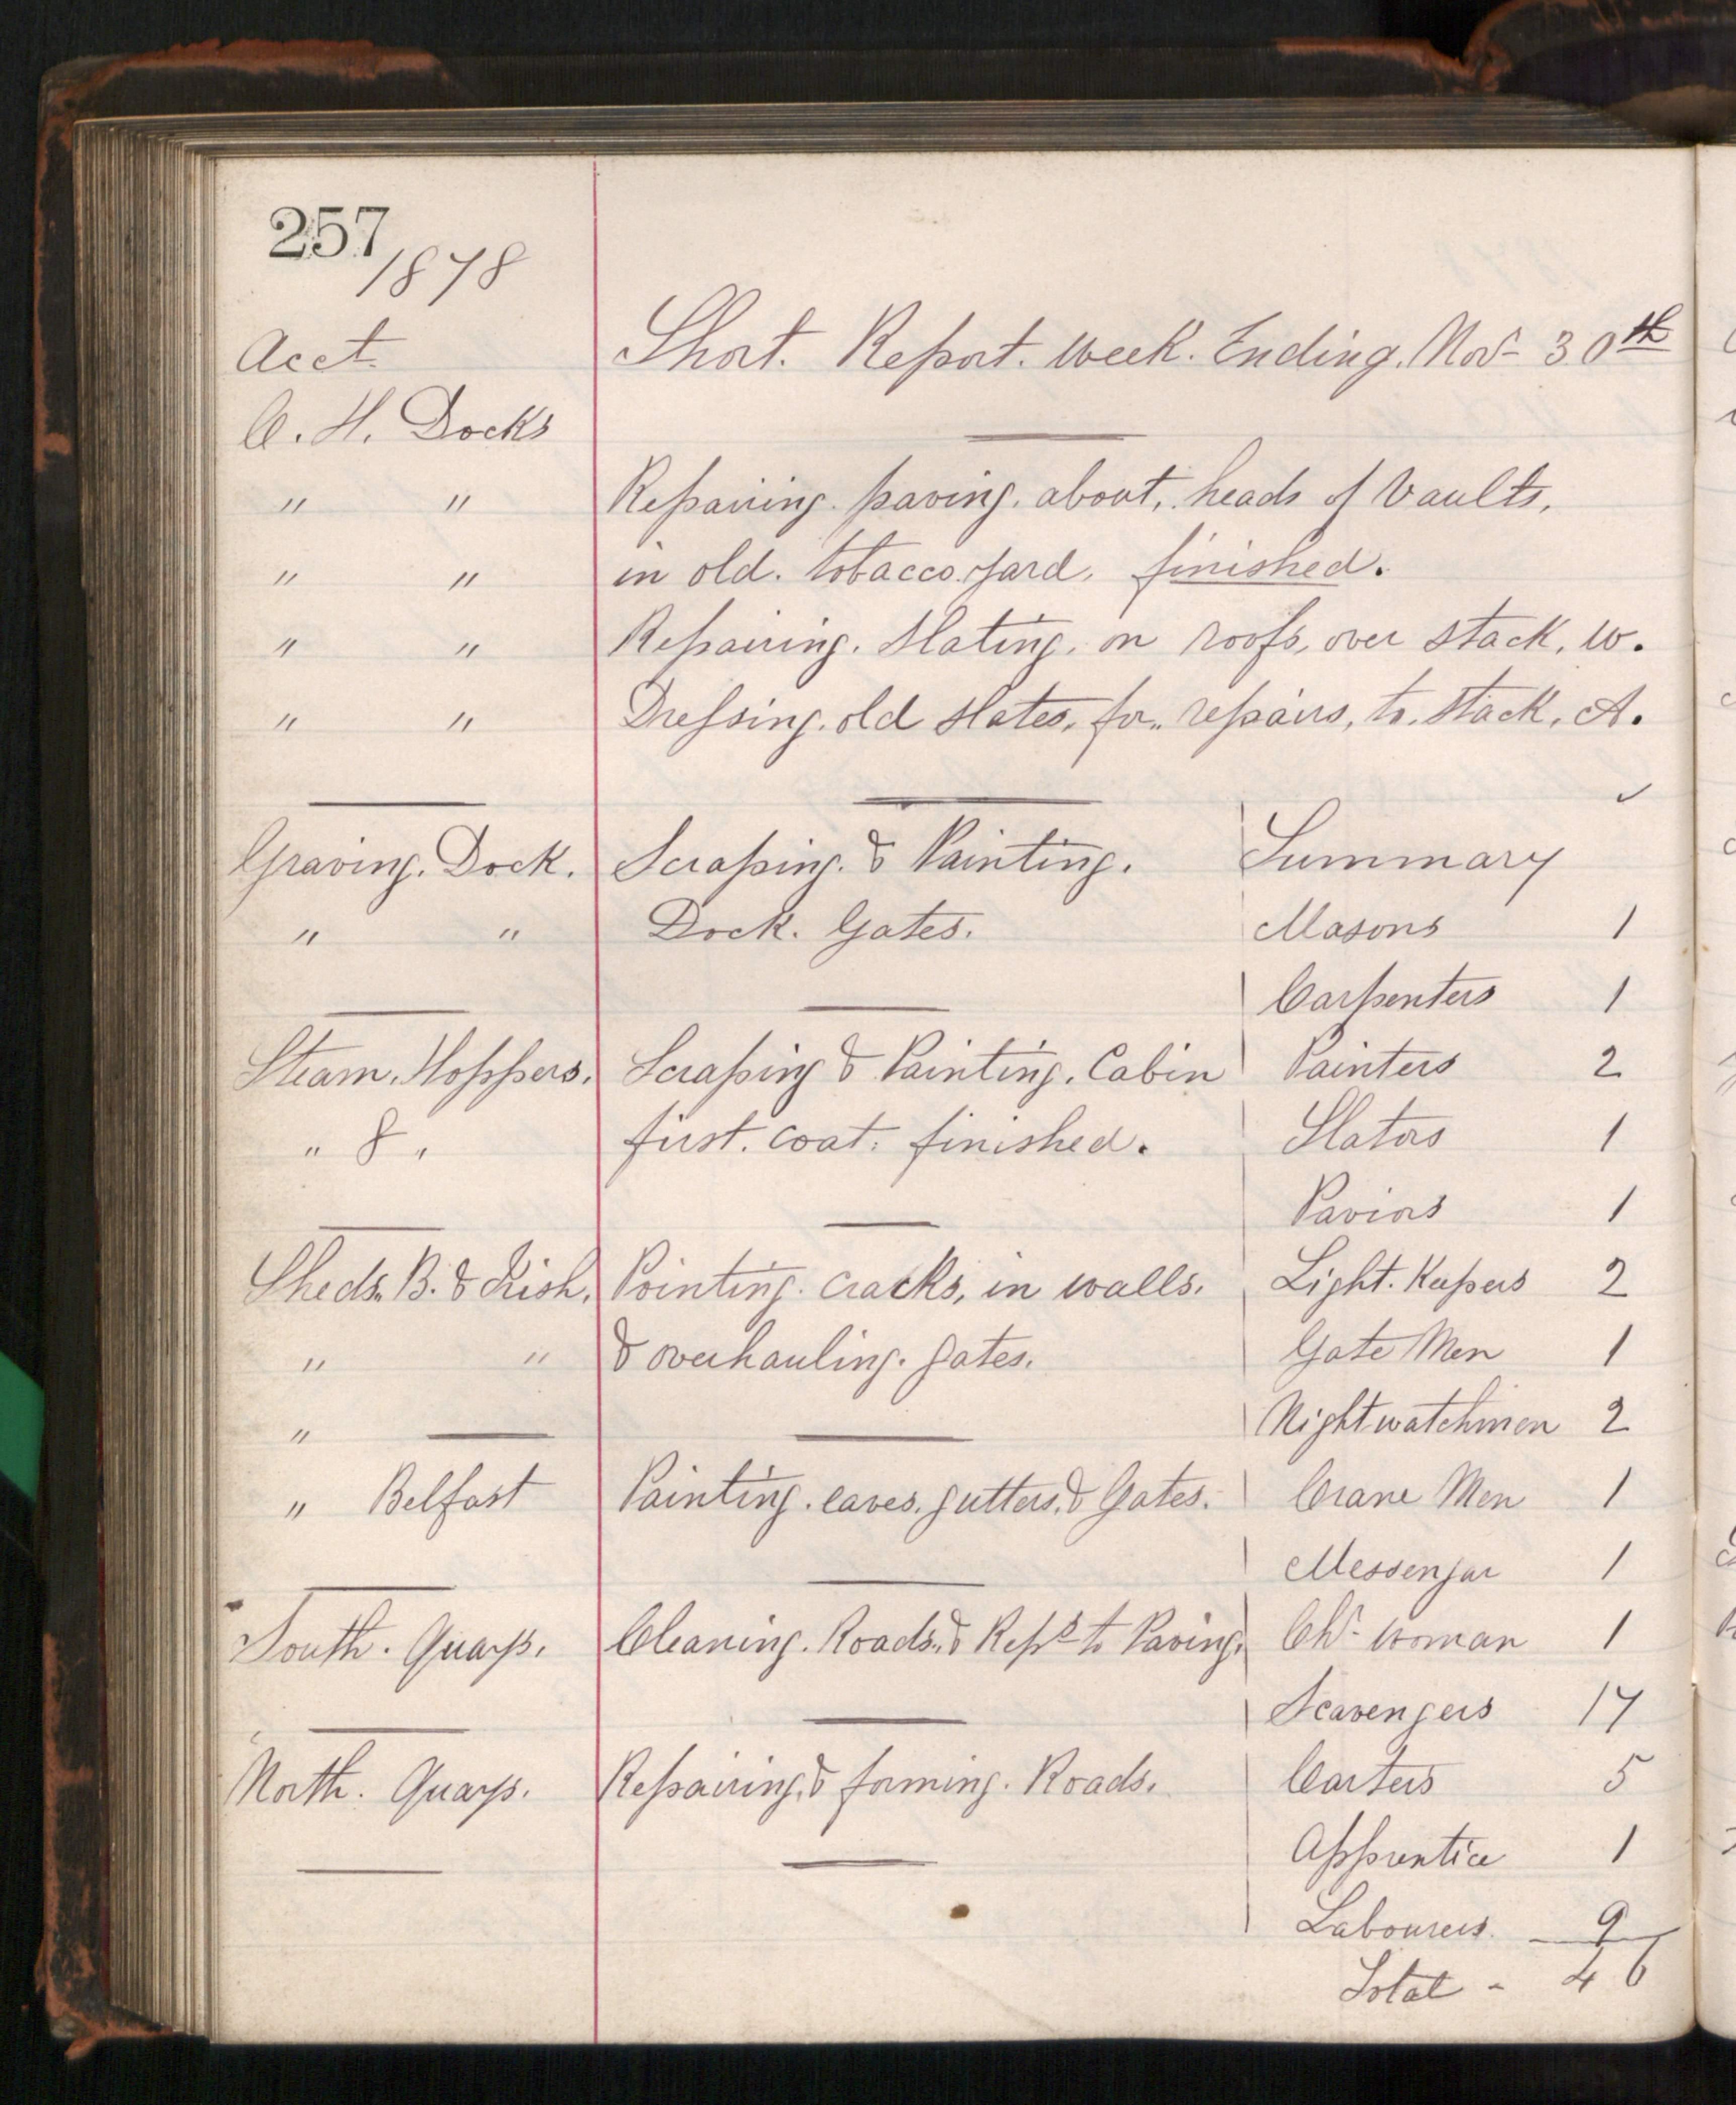 257
1878
Acct.
Short. Report. Week. Ending. Novr 30th
C. H. Docks
" " Repairing. paving. about, heads of Vaults,
" " in old. tobacco. yard. finished.
" " Repairing. Slating. on roofs, over stack, W.
" " Dressing. old slates, for.. repairs, to. Stack, A.
Graving. Dock. Scraping. & Painting.
" " Dock. Gates.
Steam. Hoppers. Scraping & Painting. Cabin
" 8 " first. coat. finished.
Sheds. B. & Irish. Pointing. cracks, in walls.
" " & overhauling. gates.
"
" Belfast Painting. eaves. gutters. & Gates.
South. Quays. Cleaning. Roads. & Reps to Paving.
North. Quays. Repairing. & forming. Roads.
Summary
Masons 1
Carpenters 1
Painters 2
Slators 1
Paviors 1
Light. Keepers 2
Gate Men 1
Nightwatchmen 2
Crane Men 1
Messenger 1
Chr Woman 1
Scavengers 17
Carters 5
Apprentice 1
Labourers. 9
Total - 46